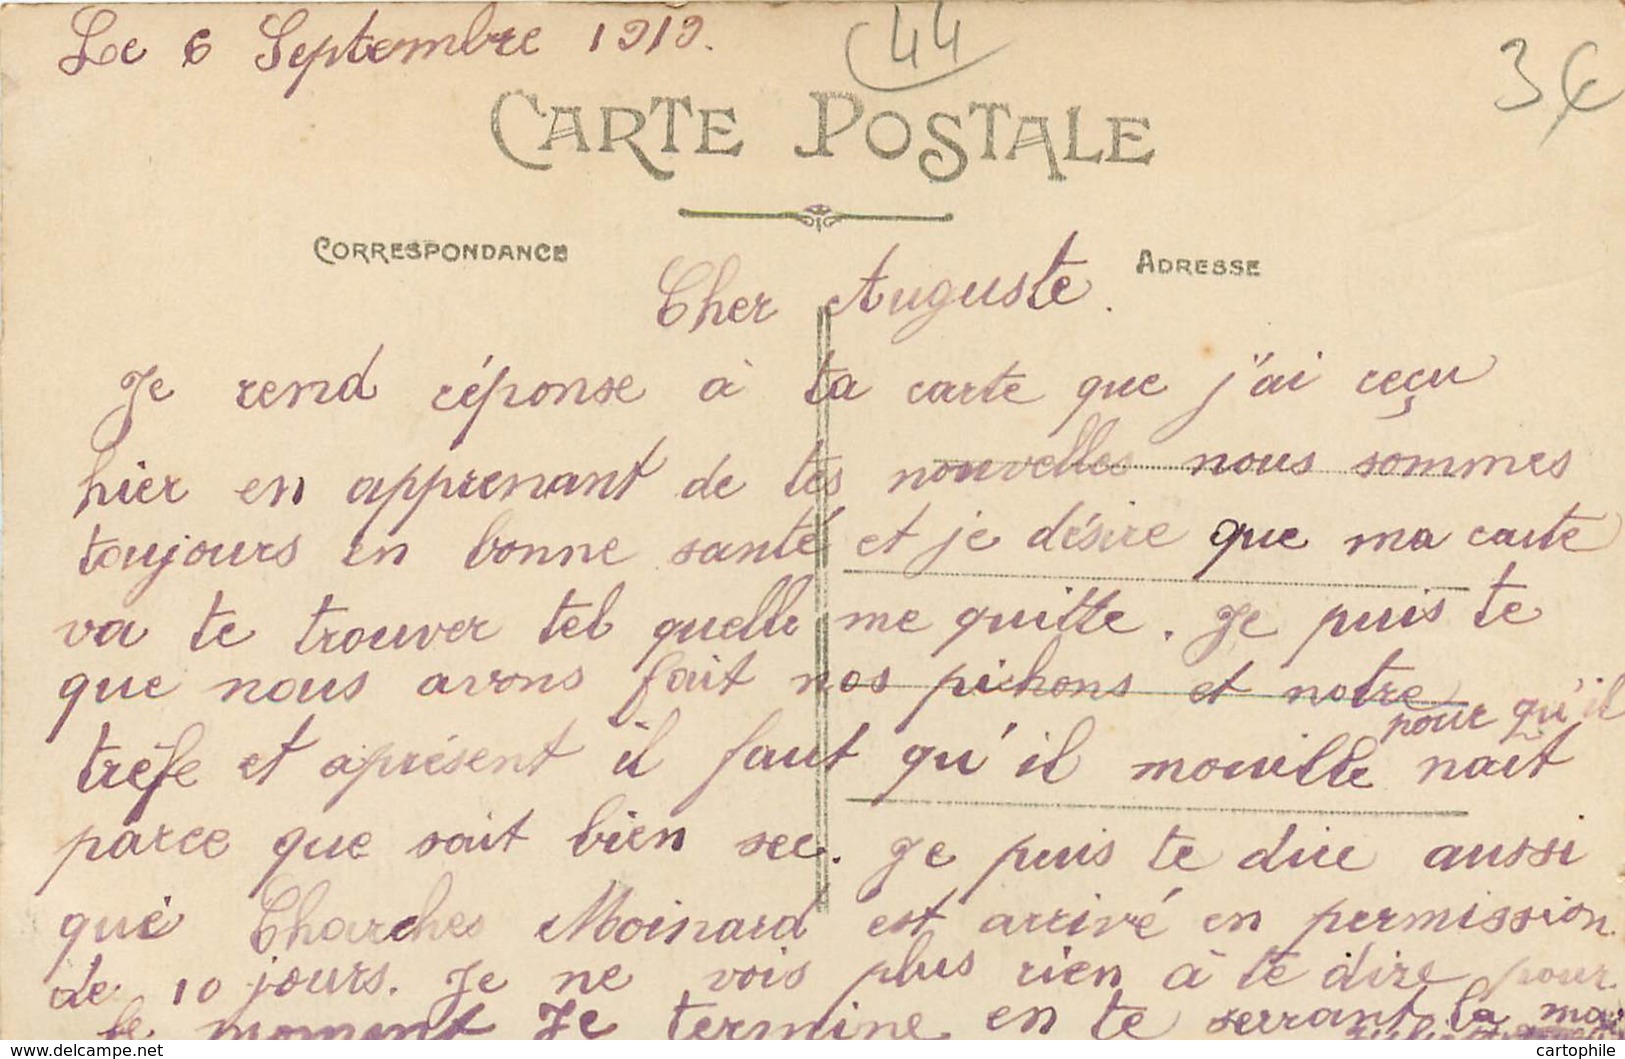 Le 6 Septembre 1919.
44
3€
CARTE POSTALE
CORRESPONDANCE
ADRESSE
Cher Auguste.
Je rend réponse à ta carte que j'ai reçu
hier en apprenant de tes nouvelles nous sommes
toujours en bonne santé et je désire que ma carte
va te trouver tel quelle me quitte. Je puis te
que nous avons fait nos pichons et notre
trèfe et aprésent il faut qu'il mouille pour qu'il nait
parce que sait bien sec. Je puis te dire aussi
que Charches Moinard est arrivé en permission
de 10 jours. Je ne vois plus rien à te dire pour
le moment Je termine en te serrant la
cartophile.com